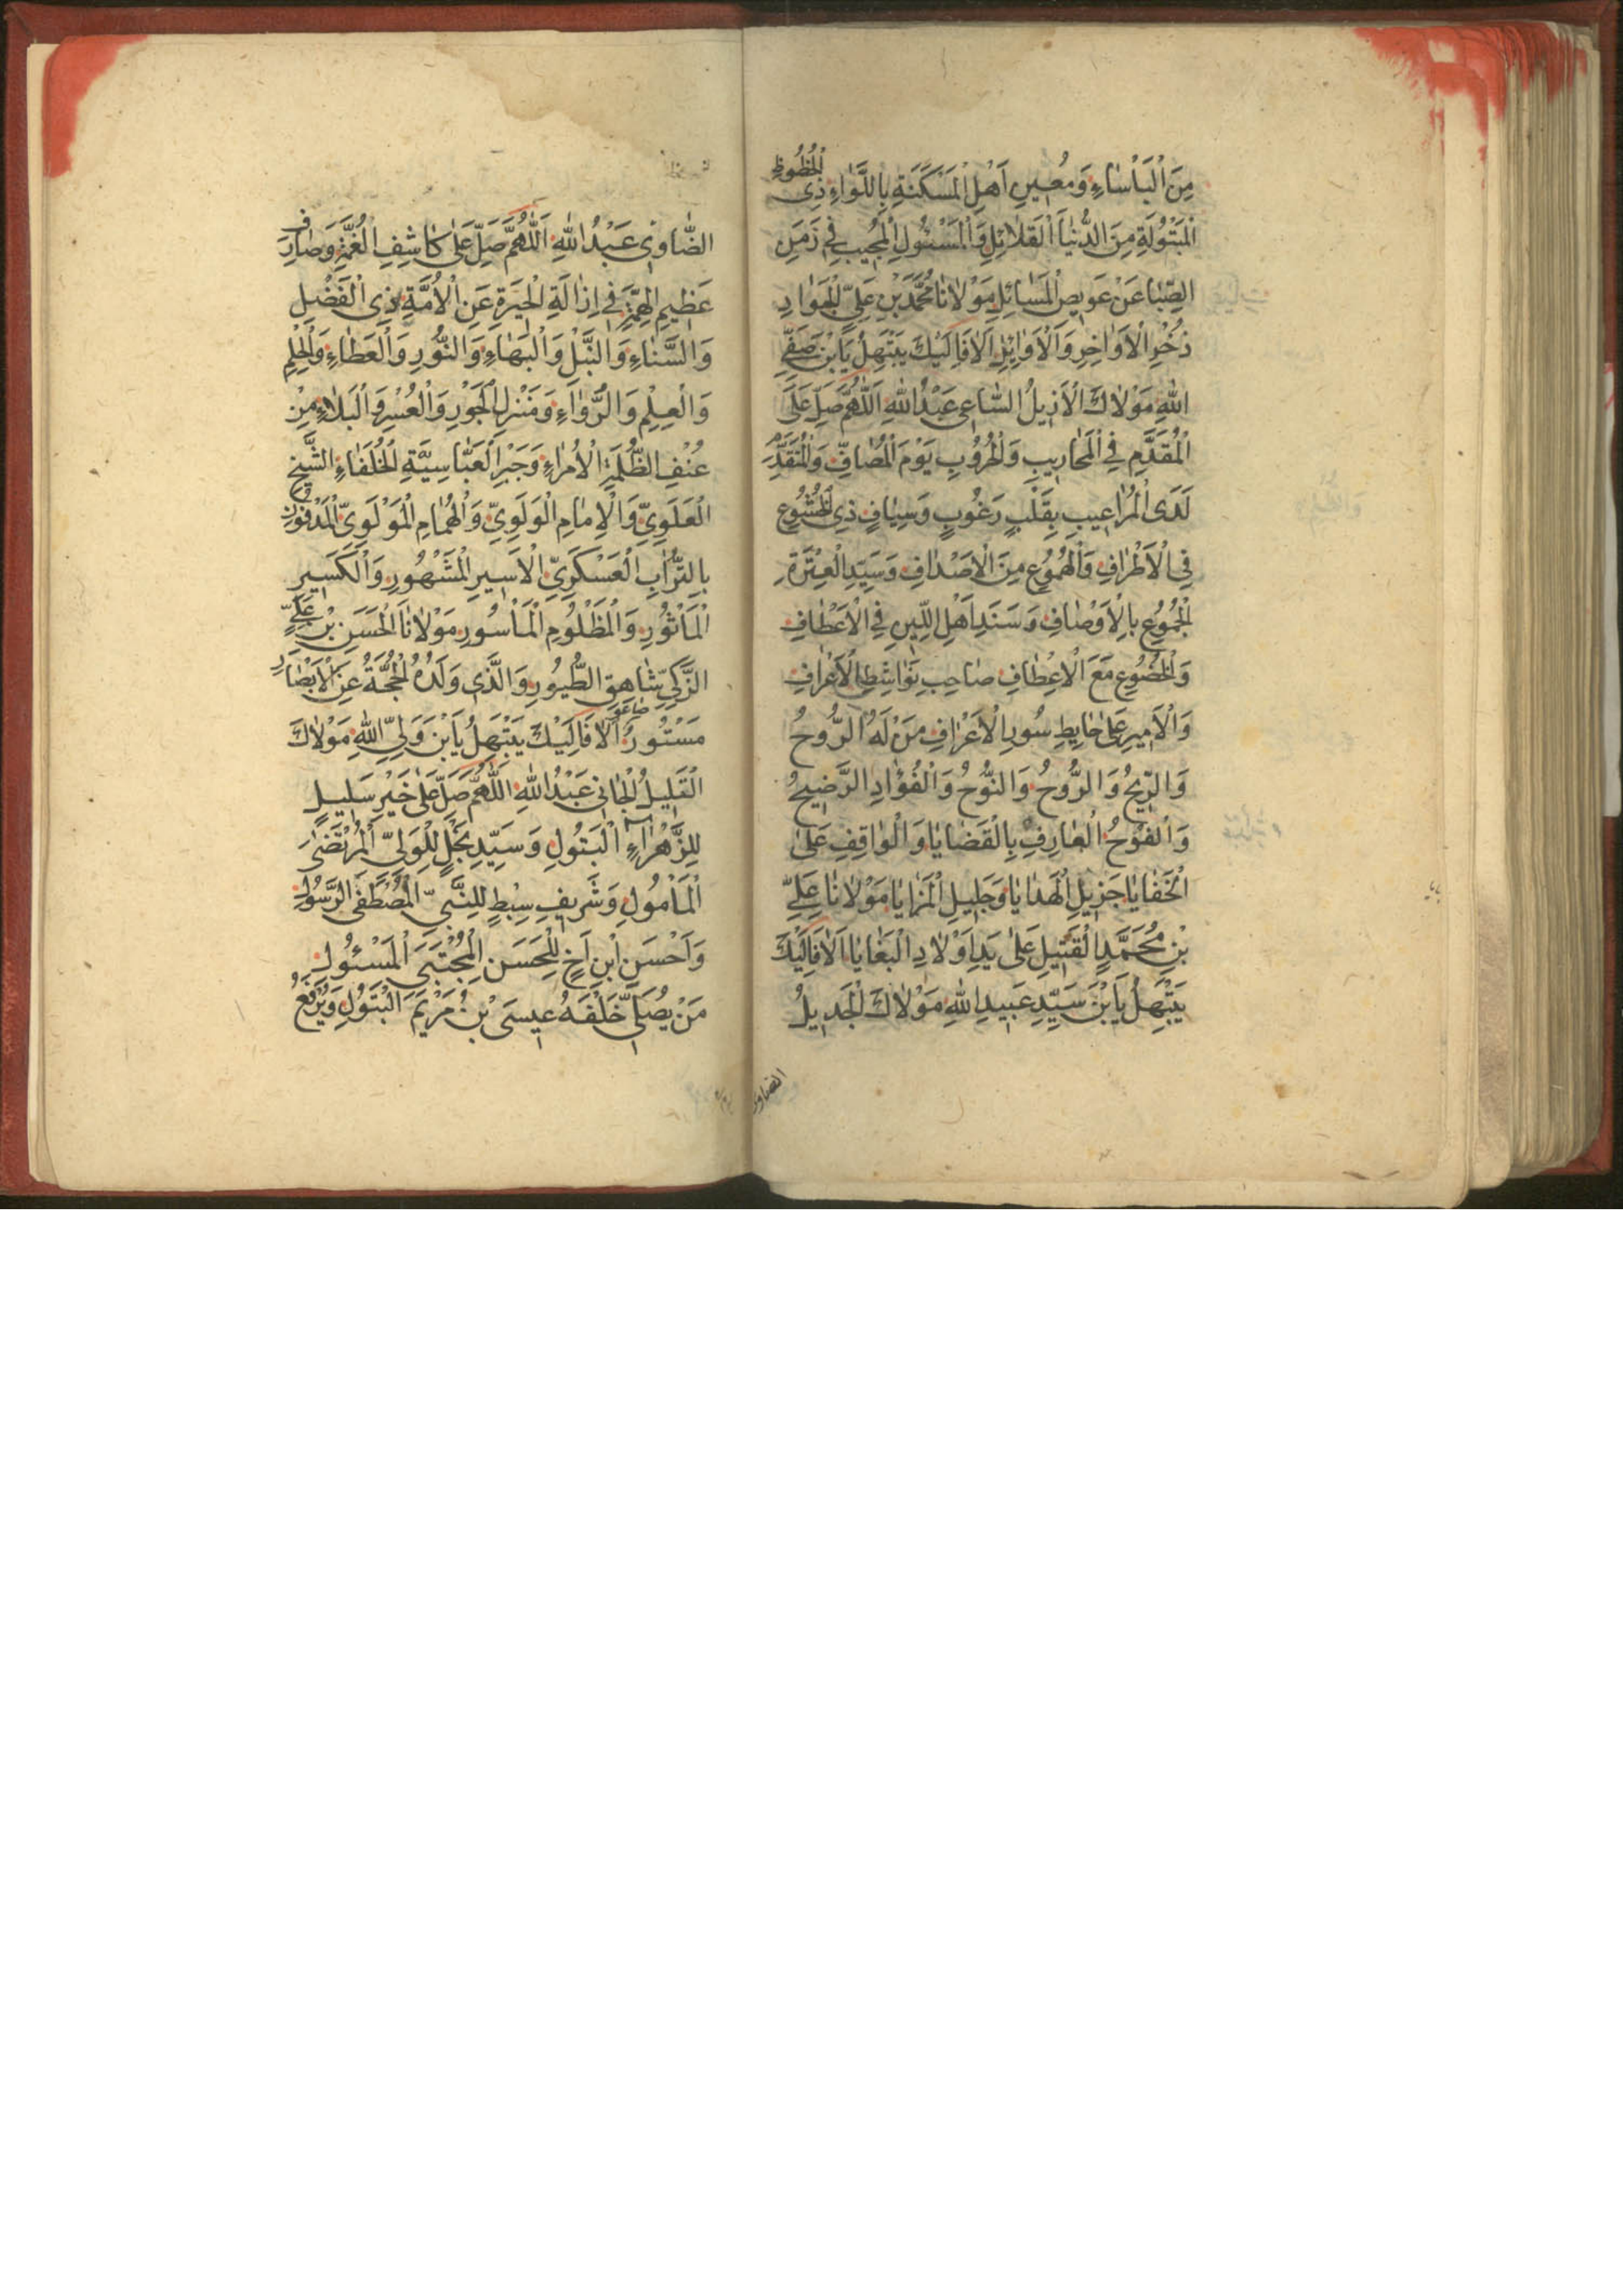 مِنَ الْبَأْسَاءِ وَمُعِينِ أَهْلِ الْمَسْكَنَةِ بِاللَّوَاءِ ذِى الْحُظُوظِ
الْمَبْتُولَةِ مِنَ الدُّنْيَا الْقَلَائِلِ وَالْمَسْئُولِ الْمُجِيبِ فِي زَمَنِ
الصِّبَا عَنْ عَوِيصِ الْمَسَائِلِ مَوْلَانَا مُحَمَّدِ بْنِ عَلِيٍّ الْجَوَادِ
ذُخْرِ الْأَوَاخِرِ وَالْأَوَائِلِ أَلَا فَإِلَيْكَ يَبْتَهِلُ يَا بْنَ صَفِيِّ
اللهِ مَوْلَاكَ الْأَذِيلُ السَّاعِي عَبْدُ اللهِ اَللّٰهُمَّ صَلِّ عَلَى
الْمُقَدَّمِ فِي الْمَحَارِيبِ وَالْحُرُوبِ يَوْمَ الْمُصَافِّ وَالْمُتَقَدِّمِ
لَدَى الْمُرَاعِيبِ بِقَلْبٍ رَغُوبٍ وَسِيَافٍ ذِي الْخُشُوعِ
فِي الْأَطْرَافِ وَالْهُمُوعِ مِنَ الْأَصْدَافِ وَسَيِّدِ الْعِتْرَةِ
الْجُمُوعِ بِالْأَوْصَافِ وَسَنَدِ أَهْلِ اللِّينِ فِي الْأَعْطَافِ
وَالْخُضُوعِ مَعَ الْأَعْطَافِ صَاحِبِ نَوَاشِطِ الْأَعْرَافِ
وَالْأَمِيرِ عَلَى حَايِطِ سُورِ الْأَعْرَافِ مَنْ لَهُ الرُّوحُ
وَالرِّيحُ وَالرَّوْحُ وَالنُّوحُ وَالْفُؤَادِ الرَّضِيحُ
وَالْفَوْحُ الْعَارِفِ بِالْقَضَايَا وَالْوَاقِفِ عَلَى
الْخَفَايَا جَزِيلِ الْهَدَايَا وَجَلِيلِ الْمَزَايَا مَوْلَانَا عَلِيِّ
بْنِ مُحَمَّدٍ الْقَتِيلِ عَلَى يَدِ أَوْلَادِ الْبَغَايَا أَلَا فَإِلَيْكَ
يَبْتَهِلُ يَا بْنَ سَيِّدِ عَبِيدِ اللهِ مَوْلَاكَ الْجَدِيلُ
الضَّاوِي عَبْدُ اللهِ اَللّٰهُمَّ صَلِّ عَلَى كَاشِفِ الْغُمَّةِ وَصَارِفِ
عَظِيمِ الْهِمَّةِ فِي إِزَالَةِ الْحَيْرَةِ عَنِ الْأُمَّةِ ذِي الْفَضْلِ
وَالسَّنَاءِ وَالنَّبْلِ وَالْبَهَاءِ وَالنُّورِ وَالْعَطَاءِ وَالْحِلْمِ
وَالْعِلْمِ وَالرُّوَاءِ وَمَنْزِلِ الْجَوْرِ وَالْعُسْرِ وَالْبَلَاءِ مِنْ
عُنْفِ الظُّلْمَةِ الْأُمَرَاءِ وَجَبْرِ الْعَبَّاسِيَّةِ الْخُلَفَاءِ الشَّيْخِ
الْعَلَوِيِّ وَالْإِمَامِ الْوَلَوِيِّ وَالْهُمَامِ الْمَوْلَوِيِّ الْمَدْفُونِ
بِالتُّرَابِ الْعَسْكَرِيِّ الْأَسِيرِ الْمَشْهُورِ وَالْكَسِيرِ
الْمَأْثُورِ وَالْمَظْلُومِ الْمَأْسُورِ مَوْلَانَا الْحَسَنِ بْنِ عَلِيٍّ
الزَّكِيِّ شَاهِقِ الطُّيُورِ وَالَّذِي وَلَدُهُ الْحُجَّةُ عَنِ الْأَبْصَارِ
مَسْتُورٌ أَلَا فَإِلَيْكَ يَبْتَهِلُ يَا بْنَ وَلِيِّ اللهِ مَوْلَاكَ
الْقَلِيلُ الْجَانِي عَبْدُ اللهِ اَللّٰهُمَّ صَلِّ عَلَى خَيْرِ سَلِيلٍ
لِلزَّهْرَاءِ الْبَتُولِ وَسَيِّدِ نَجْلٍ لِلْوَلِيِّ الْمُرْتَضَى
الْمَأْمُولِ وَشَرِيفِ سِبْطٍ لِلنَّبِيِّ الْمُصْطَفَى الرَّسُولِ
وَأَحْسَنِ ابْنِ أَخٍ لِلْحَسَنِ الْمُجْتَبَى الْمَسْئُولِ
مَنْ يُصَلِّي خَلْفَهُ عِيسَى بْنُ مَرْيَمَ الْبَتُولِ وَيُرْفَعُ
الضاوى